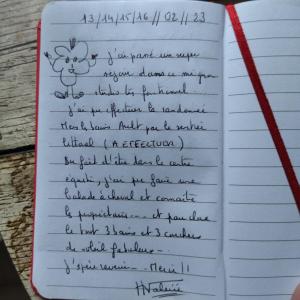 13/14/15/16 // 02 // 23
j'ai passé un super
séjour dans ce mignon
studio très fonctionnel
j'ai pu effectuer la randonnée
Mers les bains Ault par le sentier
littoral (A EFFECTUER)
Du fait d'être dans le centre
équestre, j'ai pu faire une
balade à cheval et connaître
la propriétaire.... et pour clore
le tout 3 bains et 3 couchers
de soleil fabuleux..
j'espère revenir.. Merci!!
Valérie